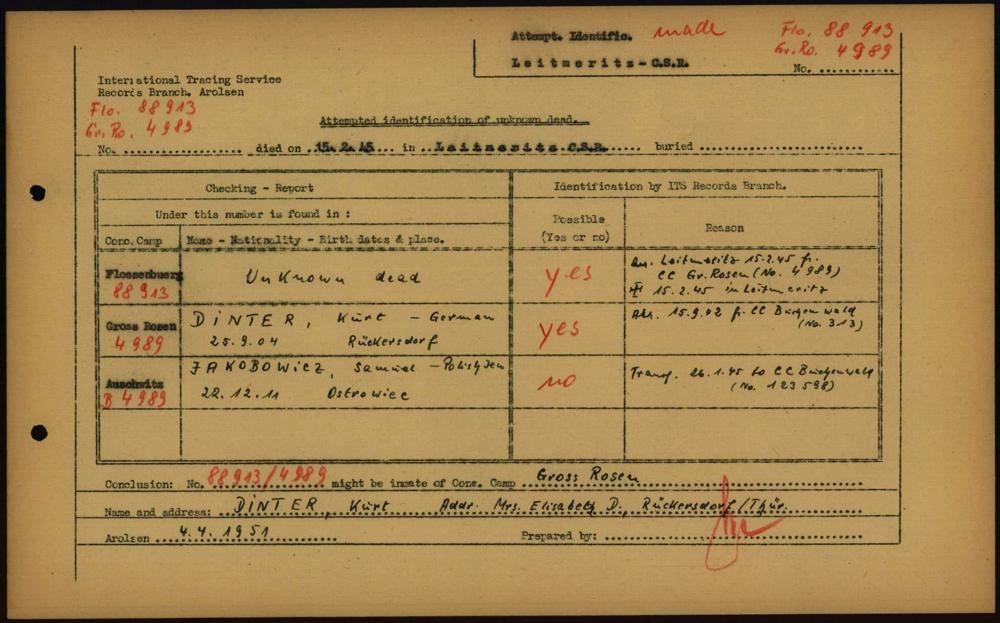 Attempt. Identific. made Flo. 88 913
Gr.Ro. 4989
Leitmeritz - C.S.R. No. ............
International Tracing Service
Records Branch, Arolsen
Flo. 88913
Gr. Ro. 4989
Attempted identification of unknown dead.
No. .................... died on .15.2.45.... in ..Leitmeritz C.S.R....... buried ............................
Checking - Report Identification by ITS Records Branch.
Under this number is found in : Possible (Yes or no) Reason
Conc. Camp Name - Nationality - Birth dates & place.
Flossenbuerg Unknown dead yes Leitmeritz 15.2.45 fr.
88 913 CC Gr. Rosen (No. 4989)
15.2.45 in Leitmeritz
Gross Rosen DINTER, Kurt - German yes 15.9.42 fr. CC Buchenwald
4989 25.9.04 Rückersdorf (No. 313)
Auschwitz JAKOBOWICZ, Samuel - Polish, Jew no Transf. 26.1.45 to CC Buchenwald
B 4989 22.12.11 Ostrowiec (No. 123598)
Conclusion: No. 88913/4989 might be inmate of Conc. Camp Gross Rosen
Name and address: DINTER, Kurt Addr. Mrs. Elisabeth D., Rückersdorf/Thür.
Arolsen 4.4.1951 Prepared by: